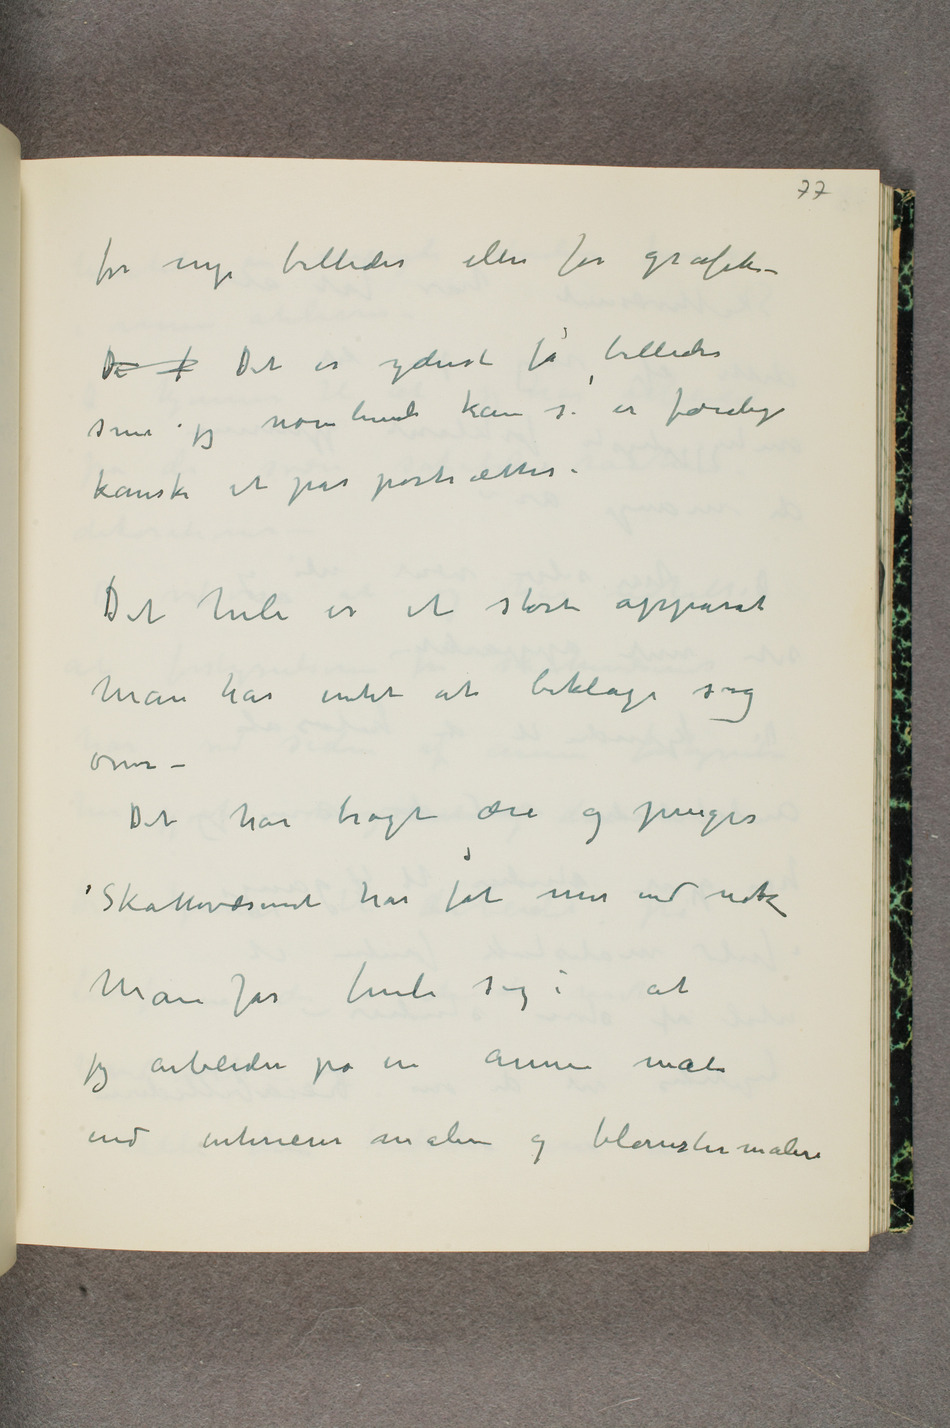 77
for nye billeder eller for grafik –
De f Det er yderst få billeder
som jeg nærmest kan si er færdige
kanske et par portrætter.
Det hele er et stort apparat
Man har intet at beklage sig
over –
Det har bragt ære og penger
Skattevæsenet har fåt mer end nok
Man får finde sig i at
jeg arbeider på en annen måte
end interieur maler og blomstermalere